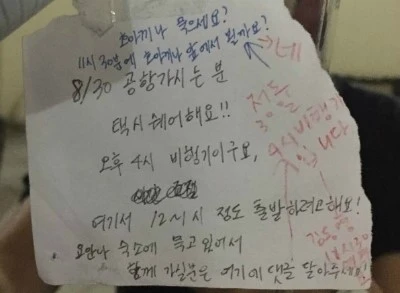 묵으세요?
11시 30분에 앞에서 뵐까요?
→네
8/30 공항가시는 분
택시 쉐어해요!!
오후 4시 비행기이구요,
여기서 12~1시 정도 출발하려고해요!
숙소에 묵고 있어서
함께 가실분은 여기에 댓글 달아주세요!
저도
30일
9시 비행기
입니다